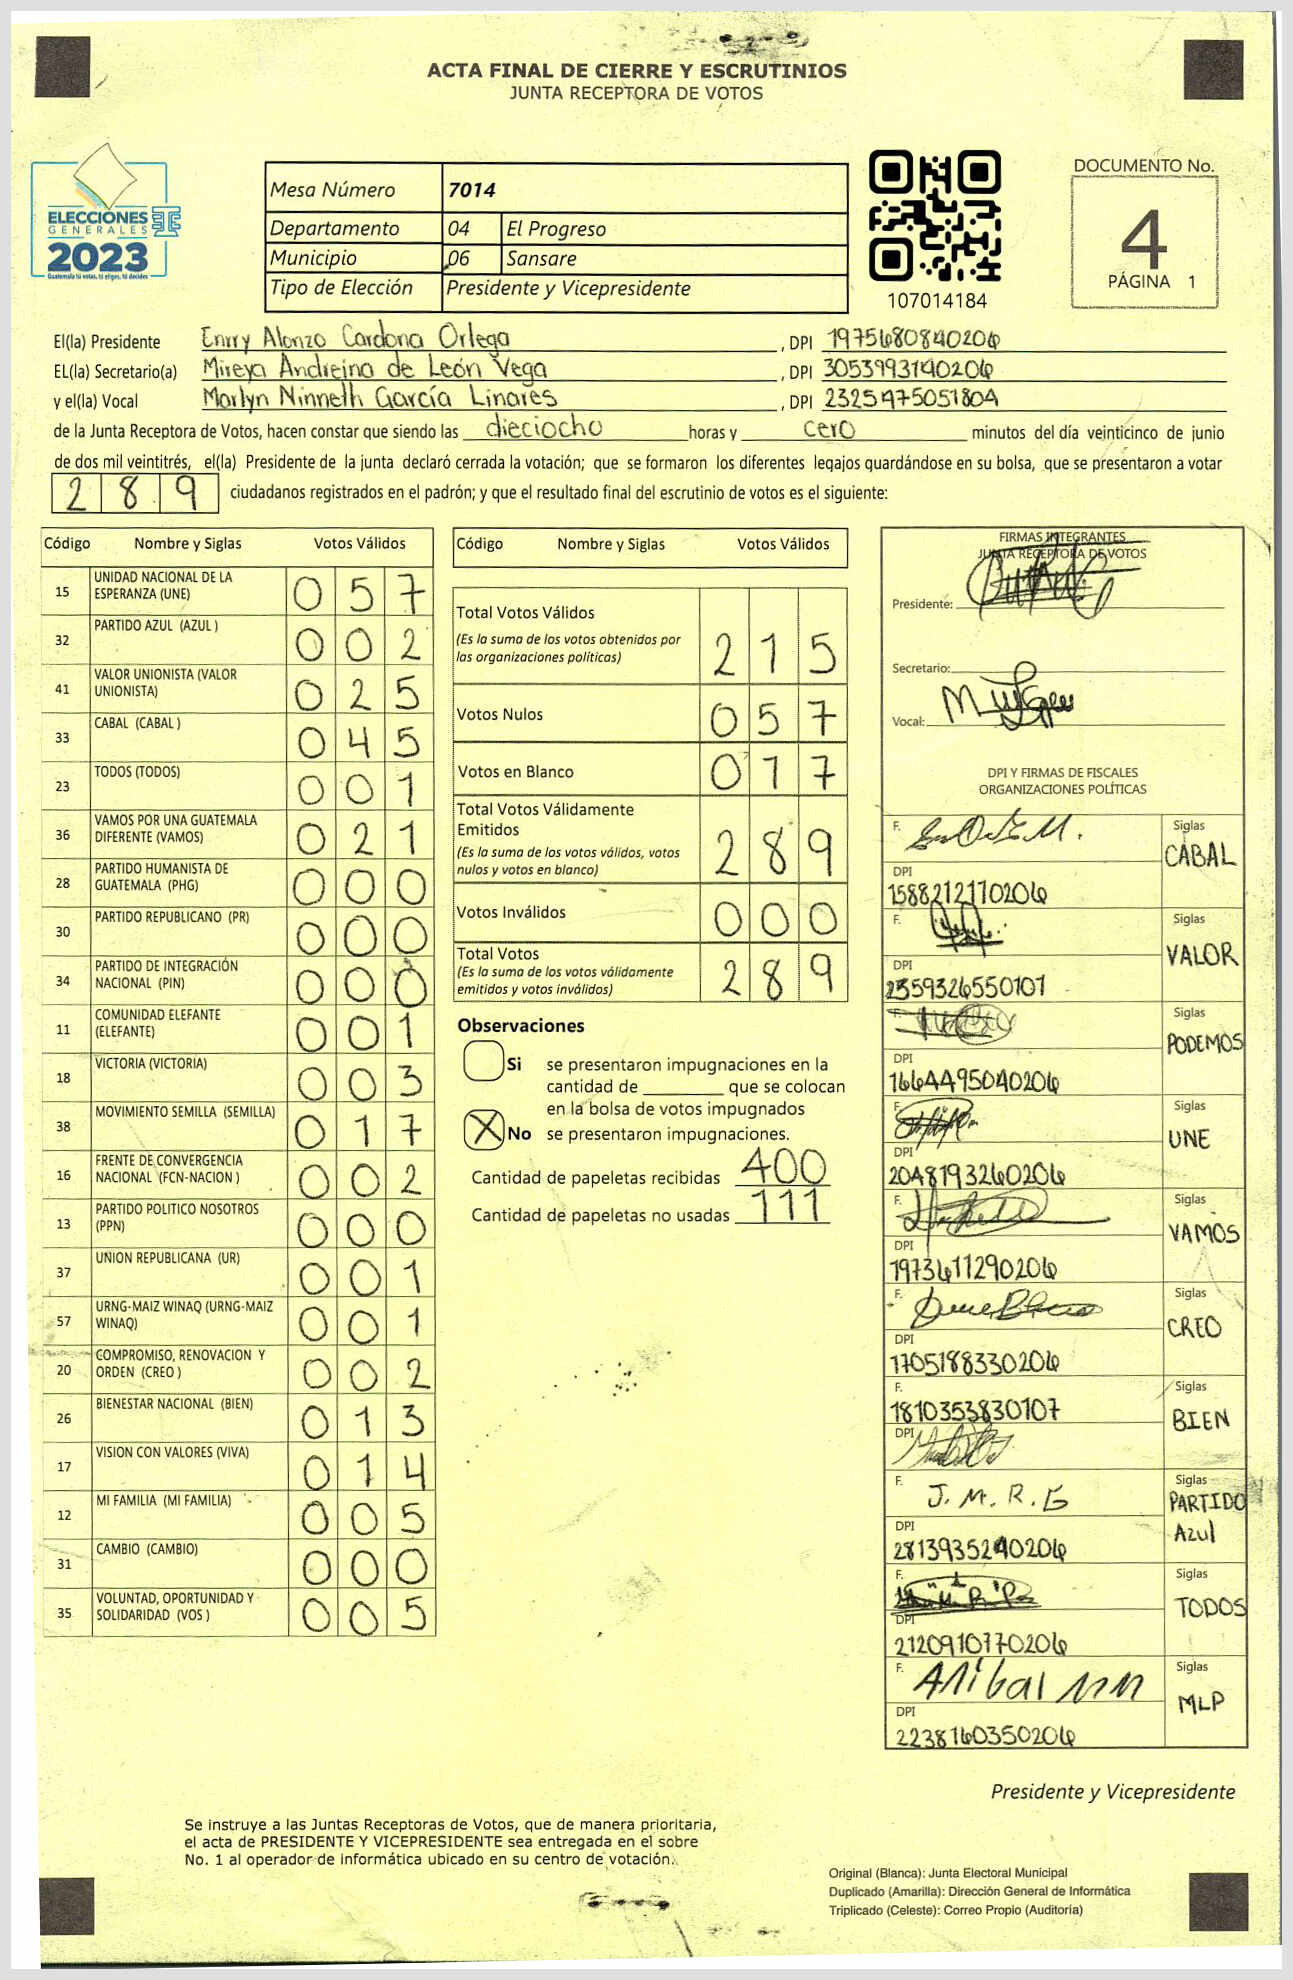 ACTA FINAL DE CIERRE Y ESCRUTINIOS
JUNTA RECEPTORA DE VOTOS
ELECCIONES
GENERALES
2023
Guatemala tú votas, tú eliges, tú decides
Mesa Número 7014
Departamento 04 El Progreso
Municipio 06 Sansare
Tipo de Elección Presidente y Vicepresidente
107014184
DOCUMENTO No.
4
PÁGINA 1
El(la) Presidente Enrry Alonzo Cardona Ortega, DPI 1975680840206
EL(la) Secretario(a) Mireya Andreina de León Vega, DPI 3053993140206
y el(la) Vocal Marlyn Ninneth García Linares, DPI 2325475051804
de la Junta Receptora de Votos, hacen constar que siendo las dieciocho horas y cero minutos del día veinticinco de junio
de dos mil veintitrés, el(la) Presidente de la junta declaró cerrada la votación; que se formaron los diferentes legajos guardándose en su bolsa, que se presentaron a votar
289 ciudadanos registrados en el padrón; y que el resultado final del escrutinio de votos es el siguiente:
Código Nombre y Siglas Votos Válidos
15 UNIDAD NACIONAL DE LA ESPERANZA (UNE) 057
32 PARTIDO AZUL (AZUL ) 002
41 VALOR UNIONISTA (VALOR UNIONISTA) 025
33 CABAL (CABAL ) 045
23 TODOS (TODOS) 001
36 VAMOS POR UNA GUATEMALA DIFERENTE (VAMOS) 021
28 PARTIDO HUMANISTA DE GUATEMALA (PHG) 000
30 PARTIDO REPUBLICANO (PR) 000
34 PARTIDO DE INTEGRACIÓN NACIONAL (PIN) 000
11 COMUNIDAD ELEFANTE (ELEFANTE) 001
18 VICTORIA (VICTORIA) 003
38 MOVIMIENTO SEMILLA (SEMILLA) 017
16 FRENTE DE CONVERGENCIA NACIONAL (FCN-NACION ) 002
13 PARTIDO POLITICO NOSOTROS (PPN) 000
37 UNION REPUBLICANA (UR) 001
57 URNG-MAIZ WINAQ (URNG-MAIZ WINAQ) 001
20 COMPROMISO, RENOVACION Y ORDEN (CREO ) 002
26 BIENESTAR NACIONAL (BIEN) 013
17 VISION CON VALORES (VIVA) 014
12 MI FAMILIA (MI FAMILIA) 005
31 CAMBIO (CAMBIO) 000
35 VOLUNTAD, OPORTUNIDAD Y SOLIDARIDAD (VOS ) 005
Código Nombre y Siglas Votos Válidos
Total Votos Válidos
(Es la suma de los votos obtenidos por
las organizaciones políticas) 215
Votos Nulos 057
Votos en Blanco 017
Total Votos Válidamente
Emitidos
(Es la suma de los votos válidos, votos
nulos y votos en blanco) 289
Votos Inválidos 000
Total Votos
(Es la suma de los votos válidamente
emitidos y votos inválidos) 289
Observaciones
Si se presentaron impugnaciones en la
cantidad de ________ que se colocan
en la bolsa de votos impugnados
X No se presentaron impugnaciones.
Cantidad de papeletas recibidas 400
Cantidad de papeletas no usadas 111
FIRMAS INTEGRANTES
JUNTA RECEPTORA DE VOTOS
Presidente:
Secretario:
Vocal:
DPI Y FIRMAS DE FISCALES
ORGANIZACIONES POLÍTICAS
F. Siglas CABAL
DPI 1588212170206
F. Siglas VALOR
DPI 2359326550101
F. Siglas PODEMOS
DPI 1664495040206
F. Siglas UNE
DPI 2048193260206
F. Siglas VAMOS
DPI 1973611290206
F. Siglas CREO
DPI 1705188330206
F. 1810353830107 Siglas BIEN
DPI
F. J. M. R. G Siglas PARTIDO Azul
DPI 2813935240206
F. Siglas TODOS
DPI 2120910770206
F. Anibal Siglas MLP
DPI 2238160350206
Presidente y Vicepresidente
Se instruye a las Juntas Receptoras de Votos, que de manera prioritaria,
el acta de PRESIDENTE Y VICEPRESIDENTE sea entregada en el sobre
No. 1 al operador de informática ubicado en su centro de votación.
Original (Blanca): Junta Electoral Municipal
Duplicado (Amarilla): Dirección General de Informática
Triplicado (Celeste): Correo Propio (Auditoría)